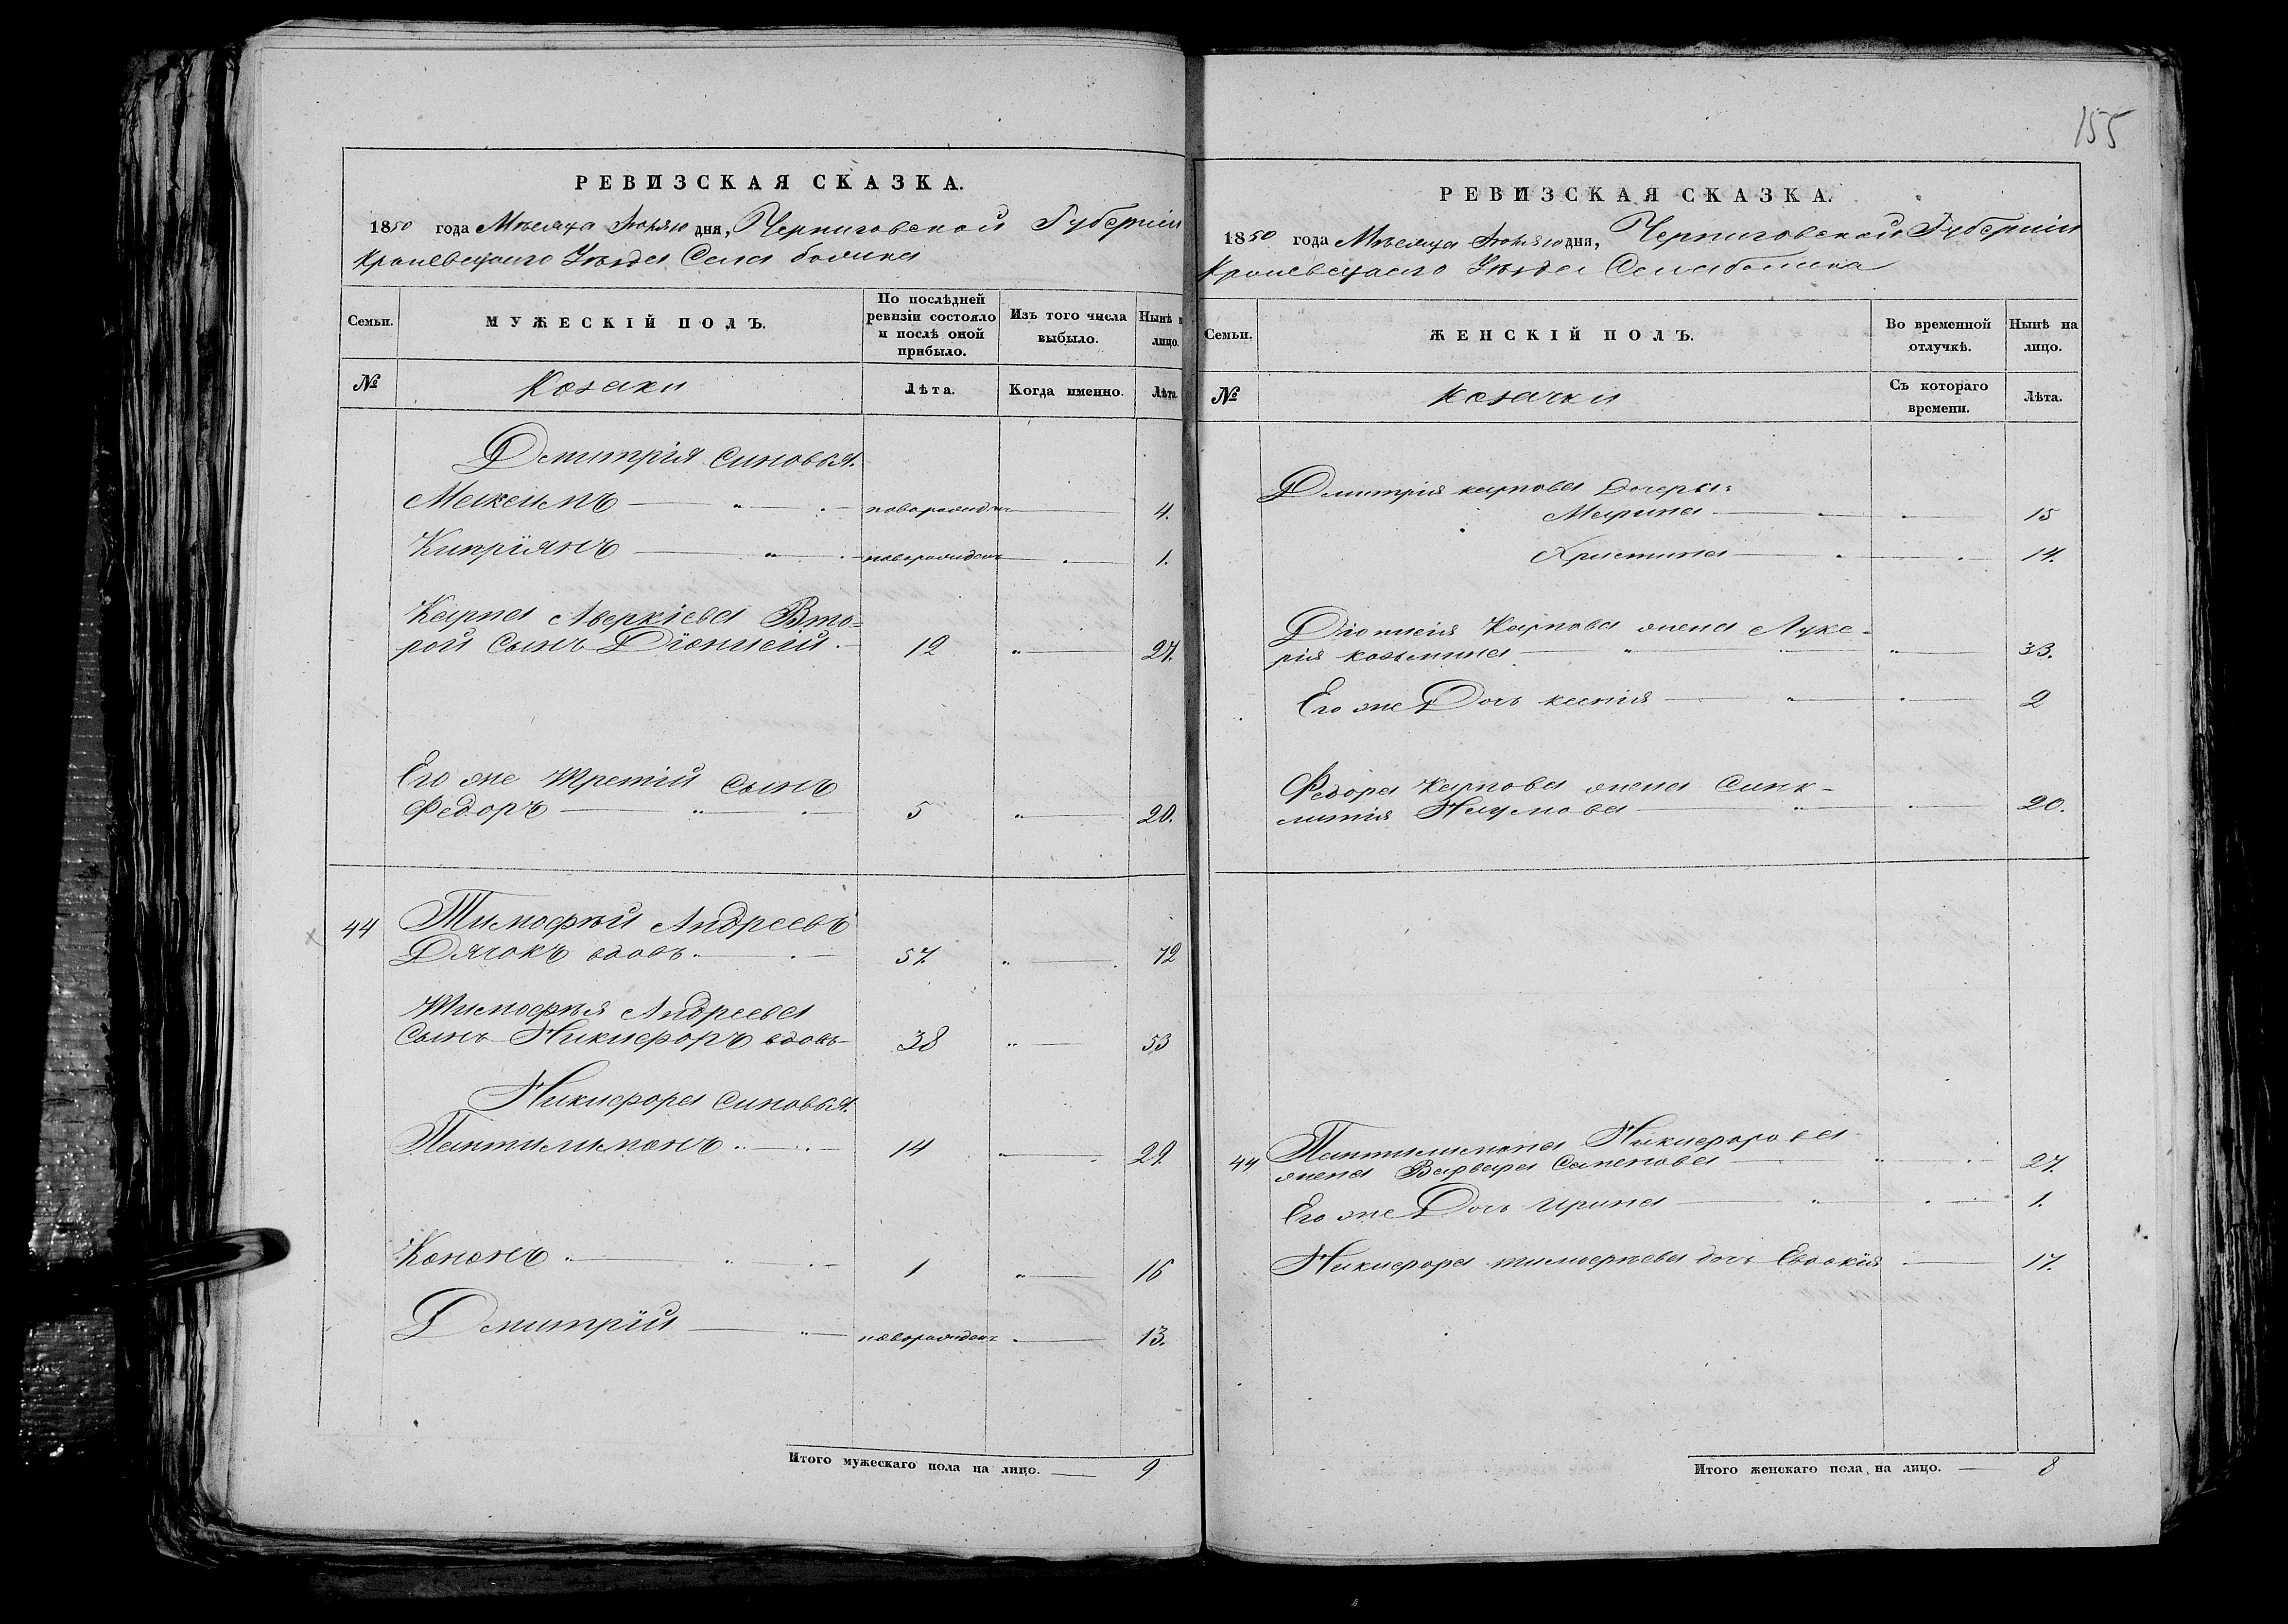 155
РЕВИЗСКАЯ СКАЗКА.
1850 года Мѣсяца дня, Черниговской Губерніи
Кролевецкаго Уѣзда Села
Семьи.
МУЖЕСКІЙ ПОЛЪ.
По послѣдней ревизіи состояло и послѣ оной прибыло.
Изъ того числа выбыло.
Нынѣ н лицо.
№
Козаки
Лѣта.
Когда именно.
Лѣта
Дмитрія синовья.
Максимъ — новорожден — 4.
Кипріянъ — новорожденъ — 1.
Карпа Аверкіева Вто=
рой сынъ Діонисій. — 12 " — 27.
Его же Третій сынъ
Федоръ — 5 " — 20.
44 Тимофѣй Андреевъ
Дячокъ вдовъ. — 57. " — 72
Тимофѣя Андреева
сынъ Никифоръ вдовъ — 38 " — 53
Никифора синовья.
Пантилимонъ — 14 " — 29.
Кононъ — 1 " — 16
Дмитрій — новорожден — 13.
Итого мужескаго пола на лицо. — 9
РЕВИЗСКАЯ СКАЗКА.
1850 года Мѣсяца дня, Черниговской Губерніи
Кролевецкаго Уѣзда Села
Семьи.
ЖЕНСКІЙ ПОЛЪ.
Во временной отлучкѣ.
Нынѣ на лицо.
№
козачки
Съ котораго времени.
Лѣта.
Дмитрія карпова Дочери:
Марина — 15
Христина — 14.
Діонисія Карпова жена Луке-
рія козьмина — 33.
Его же Дочь ксенія — 2
Федора Карпова жена Синк-
литія Наумова — 20.
44 Пантилимона Никифорова
жена Варвара Семенова — 27.
Его же Дочь ирина — 1.
Никифора тимофѣева дочь Евдокія — 17.
Итого женскаго пола на лицо. — 8